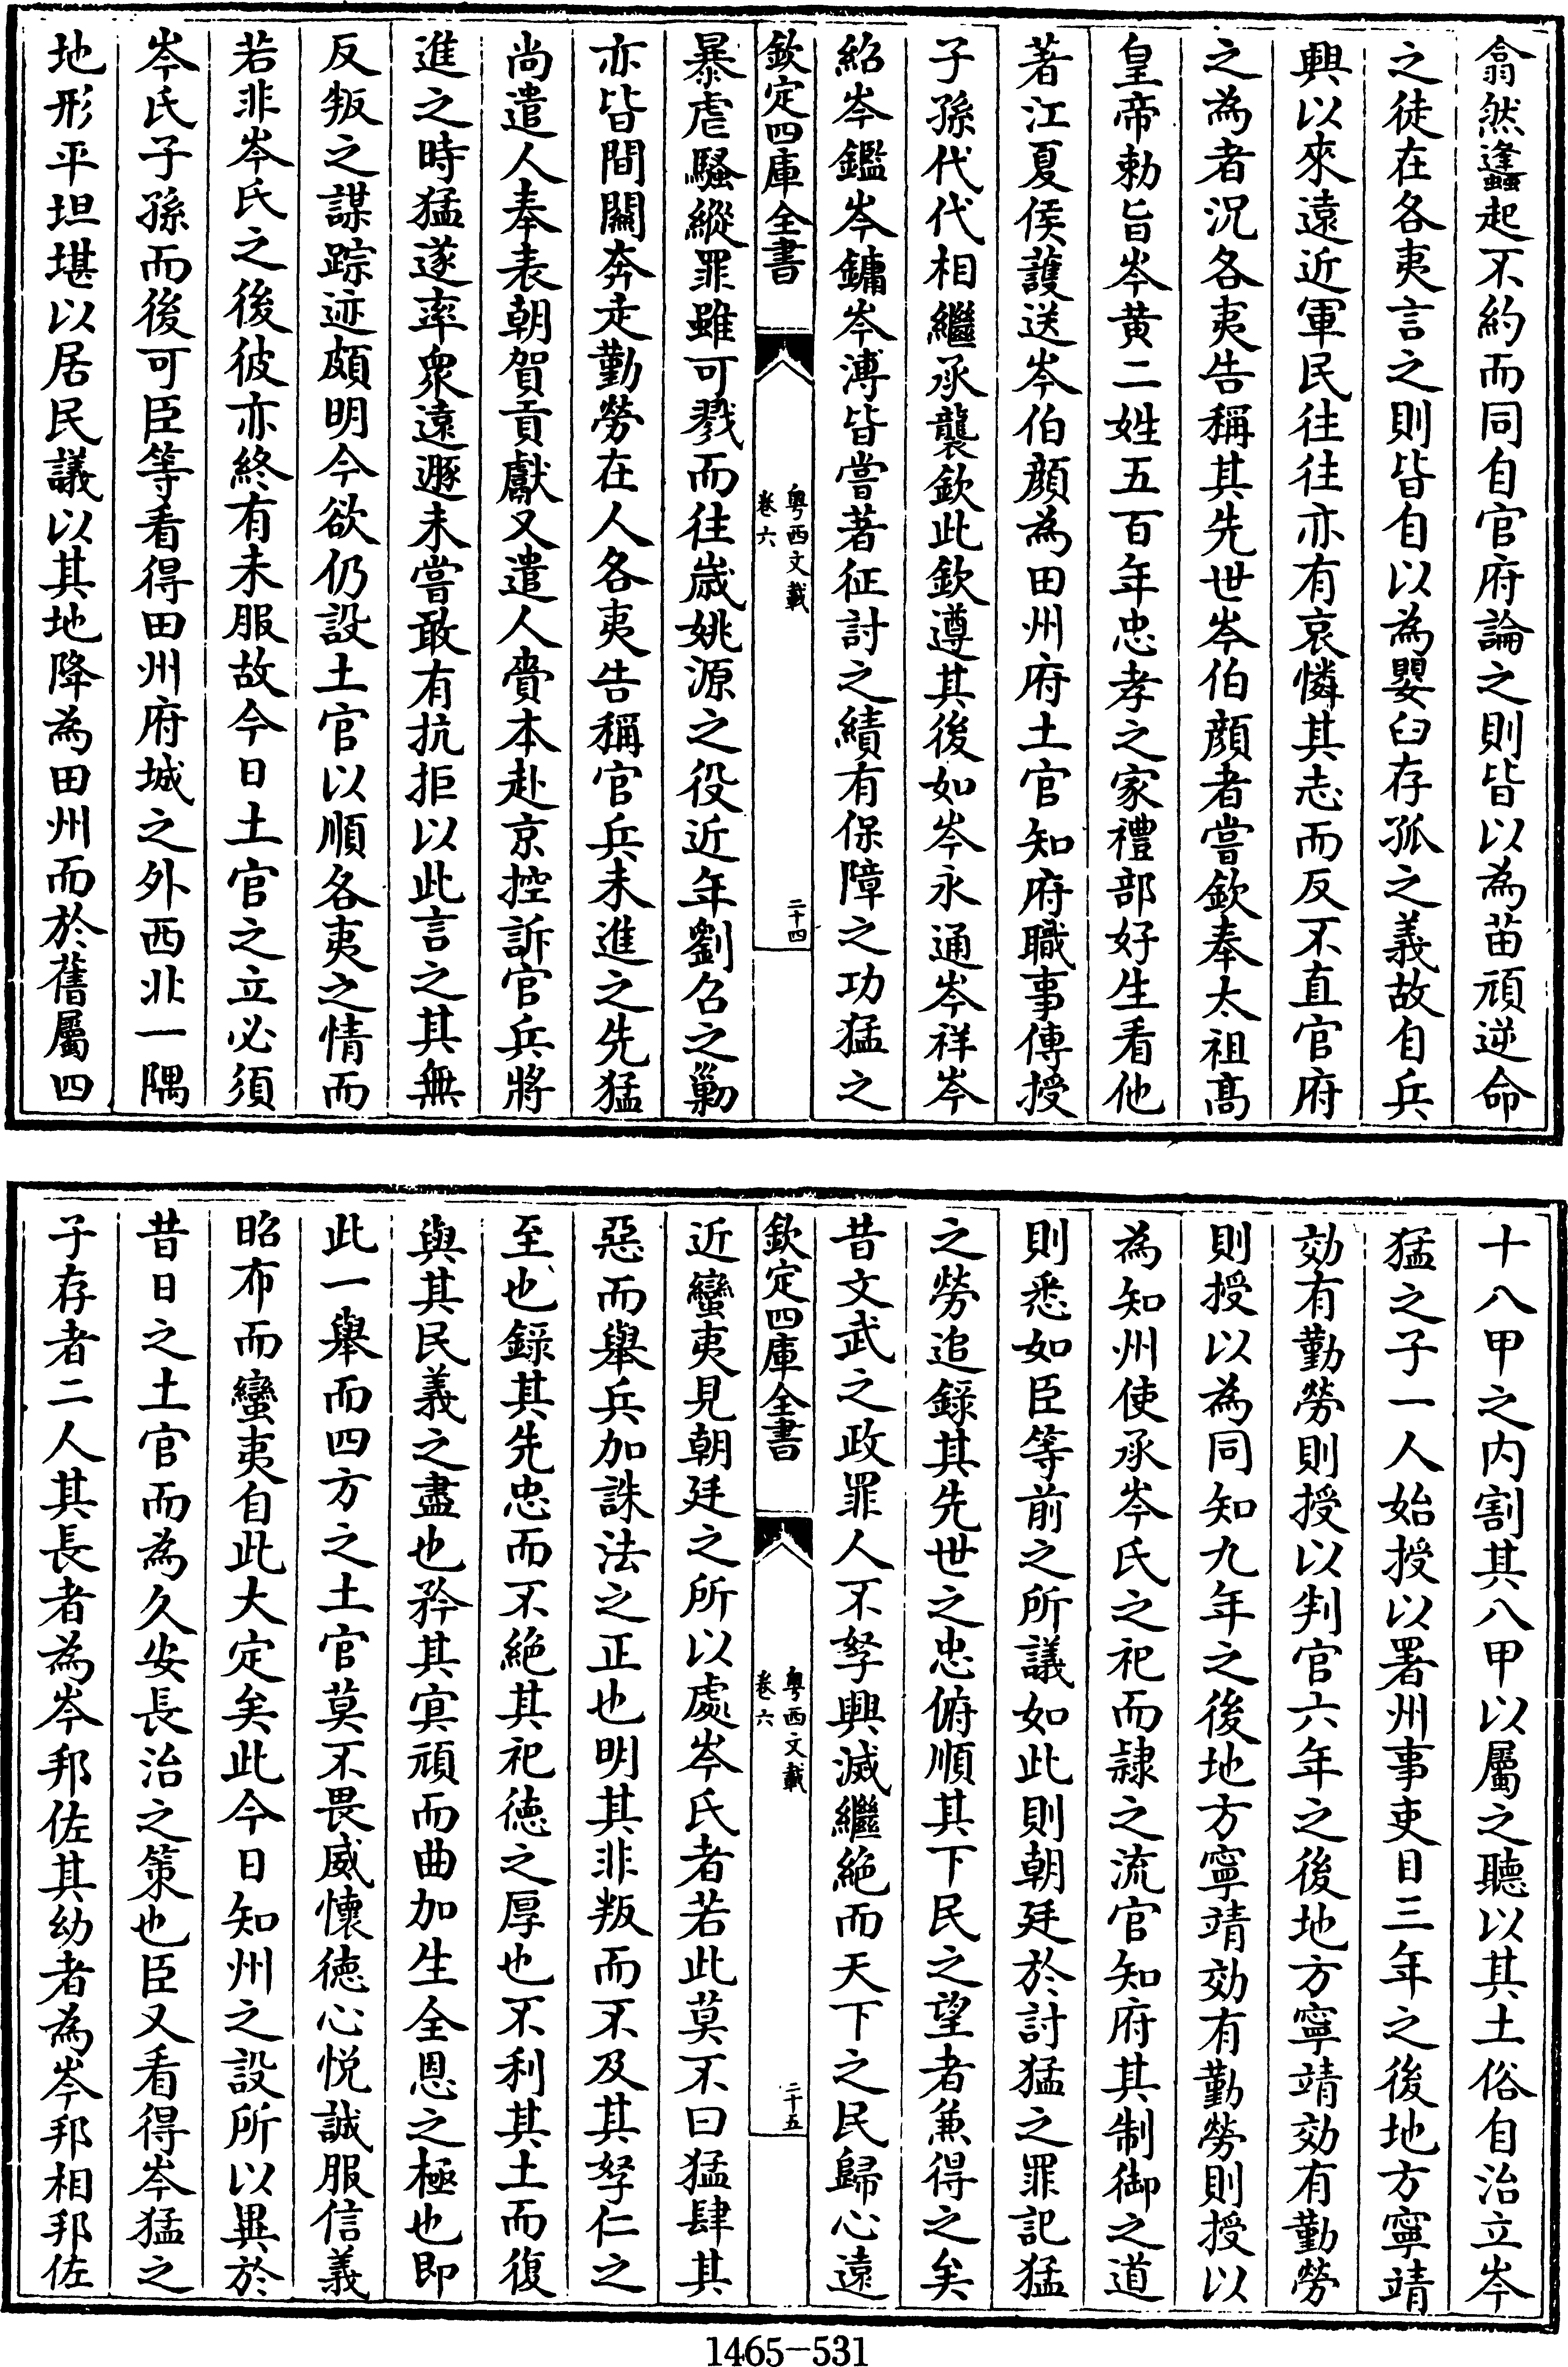 翕然蠭起不約而同自官府論之則皆以為苗頑逆命
之徒在各夷言之則皆自以為嬰臼存孤之義故自兵
興以來遠近軍民往往亦有哀憐其志而反不直官府
之為者況各夷告稱其先世岑伯顔者嘗欽奉太祖髙
皇帝勅旨岑黄二姓五百年忠孝之家禮部好生看他
著江夏侯護送岑伯顔為田州府土官知府職事傳授
子孫代代相繼承襲欽此欽遵其後如岑永通岑祥岑
紹岑鑑岑鏞岑溥皆嘗著征討之績有保障之功猛之
欽定四庫全書
粤西文載
卷六
二十四
暴虐騷縱罪雖可戮而往歳姚源之役近年劉召之勦
亦皆間關奔走勤勞在人各夷告稱官兵未進之先猛
尚遣人奉表朝賀貢獻又遣人賫本赴京控訴官兵將
進之時猛遂率衆遠遯未嘗敢有抗拒以此言之其無
反叛之謀踪迹頗明今欲仍設土官以順各夷之情而
若非岑氏之後彼亦終有未服故今日土官之立必須
岑氏子孫而後可臣等看得田州府城之外西北一隅
地形平坦堪以居民議以其地降為田州而於舊屬四
十八甲之内割其八甲以屬之聽以其土俗自治立岑
猛之子一人始授以署州事吏目三年之後地方寧靖
効有勤勞則授以判官六年之後地方寧靖効有勤勞
則授以為同知九年之後地方寧靖効有勤勞則授以
為知州使承岑氏之祀而隷之流官知府其制御之道
則悉如臣等前之所議如此則朝廷於討猛之罪記猛
之勞追録其先世之忠俯順其下民之望者兼得之矣
昔文武之政罪人不孥興滅繼絶而天下之民歸心遠
欽定四庫全書
粤西文載
卷六
二十五
近蠻夷見朝廷之所以處岑氏者若此莫不曰猛肆其
惡而舉兵加誅法之正也明其非叛而不及其孥仁之
至也録其先忠而不絶其祀徳之厚也不利其土而復
與其民義之盡也矜其寡頑而曲加生全恩之極也即
此一舉而四方之土官莫不畏威懷徳心悦誠服信義
昭布而蠻夷自此大定矣此今日知州之設所以異於
昔日之土官而為久安長治之策也臣又看得岑猛之
子存者二人其長者為岑邦佐其幼者為岑邦相邦佐
1465-531